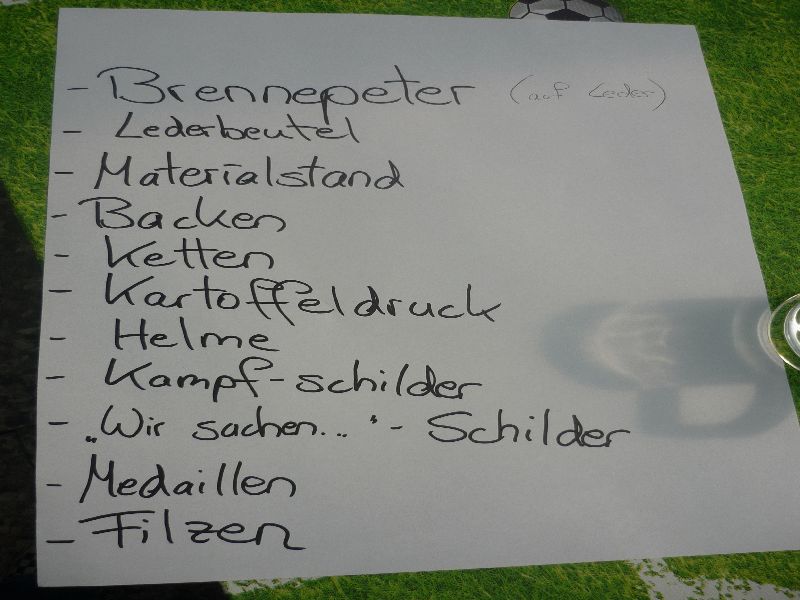 - Brennepeter (auf Leder)
- Lederbeutel
- Materialstand
- Backen
- Ketten
- Kartoffeldruck
- Helme
- Kampf-schilder
- „Wir suchen..." - Schilder
- Medaillen
- Filzen